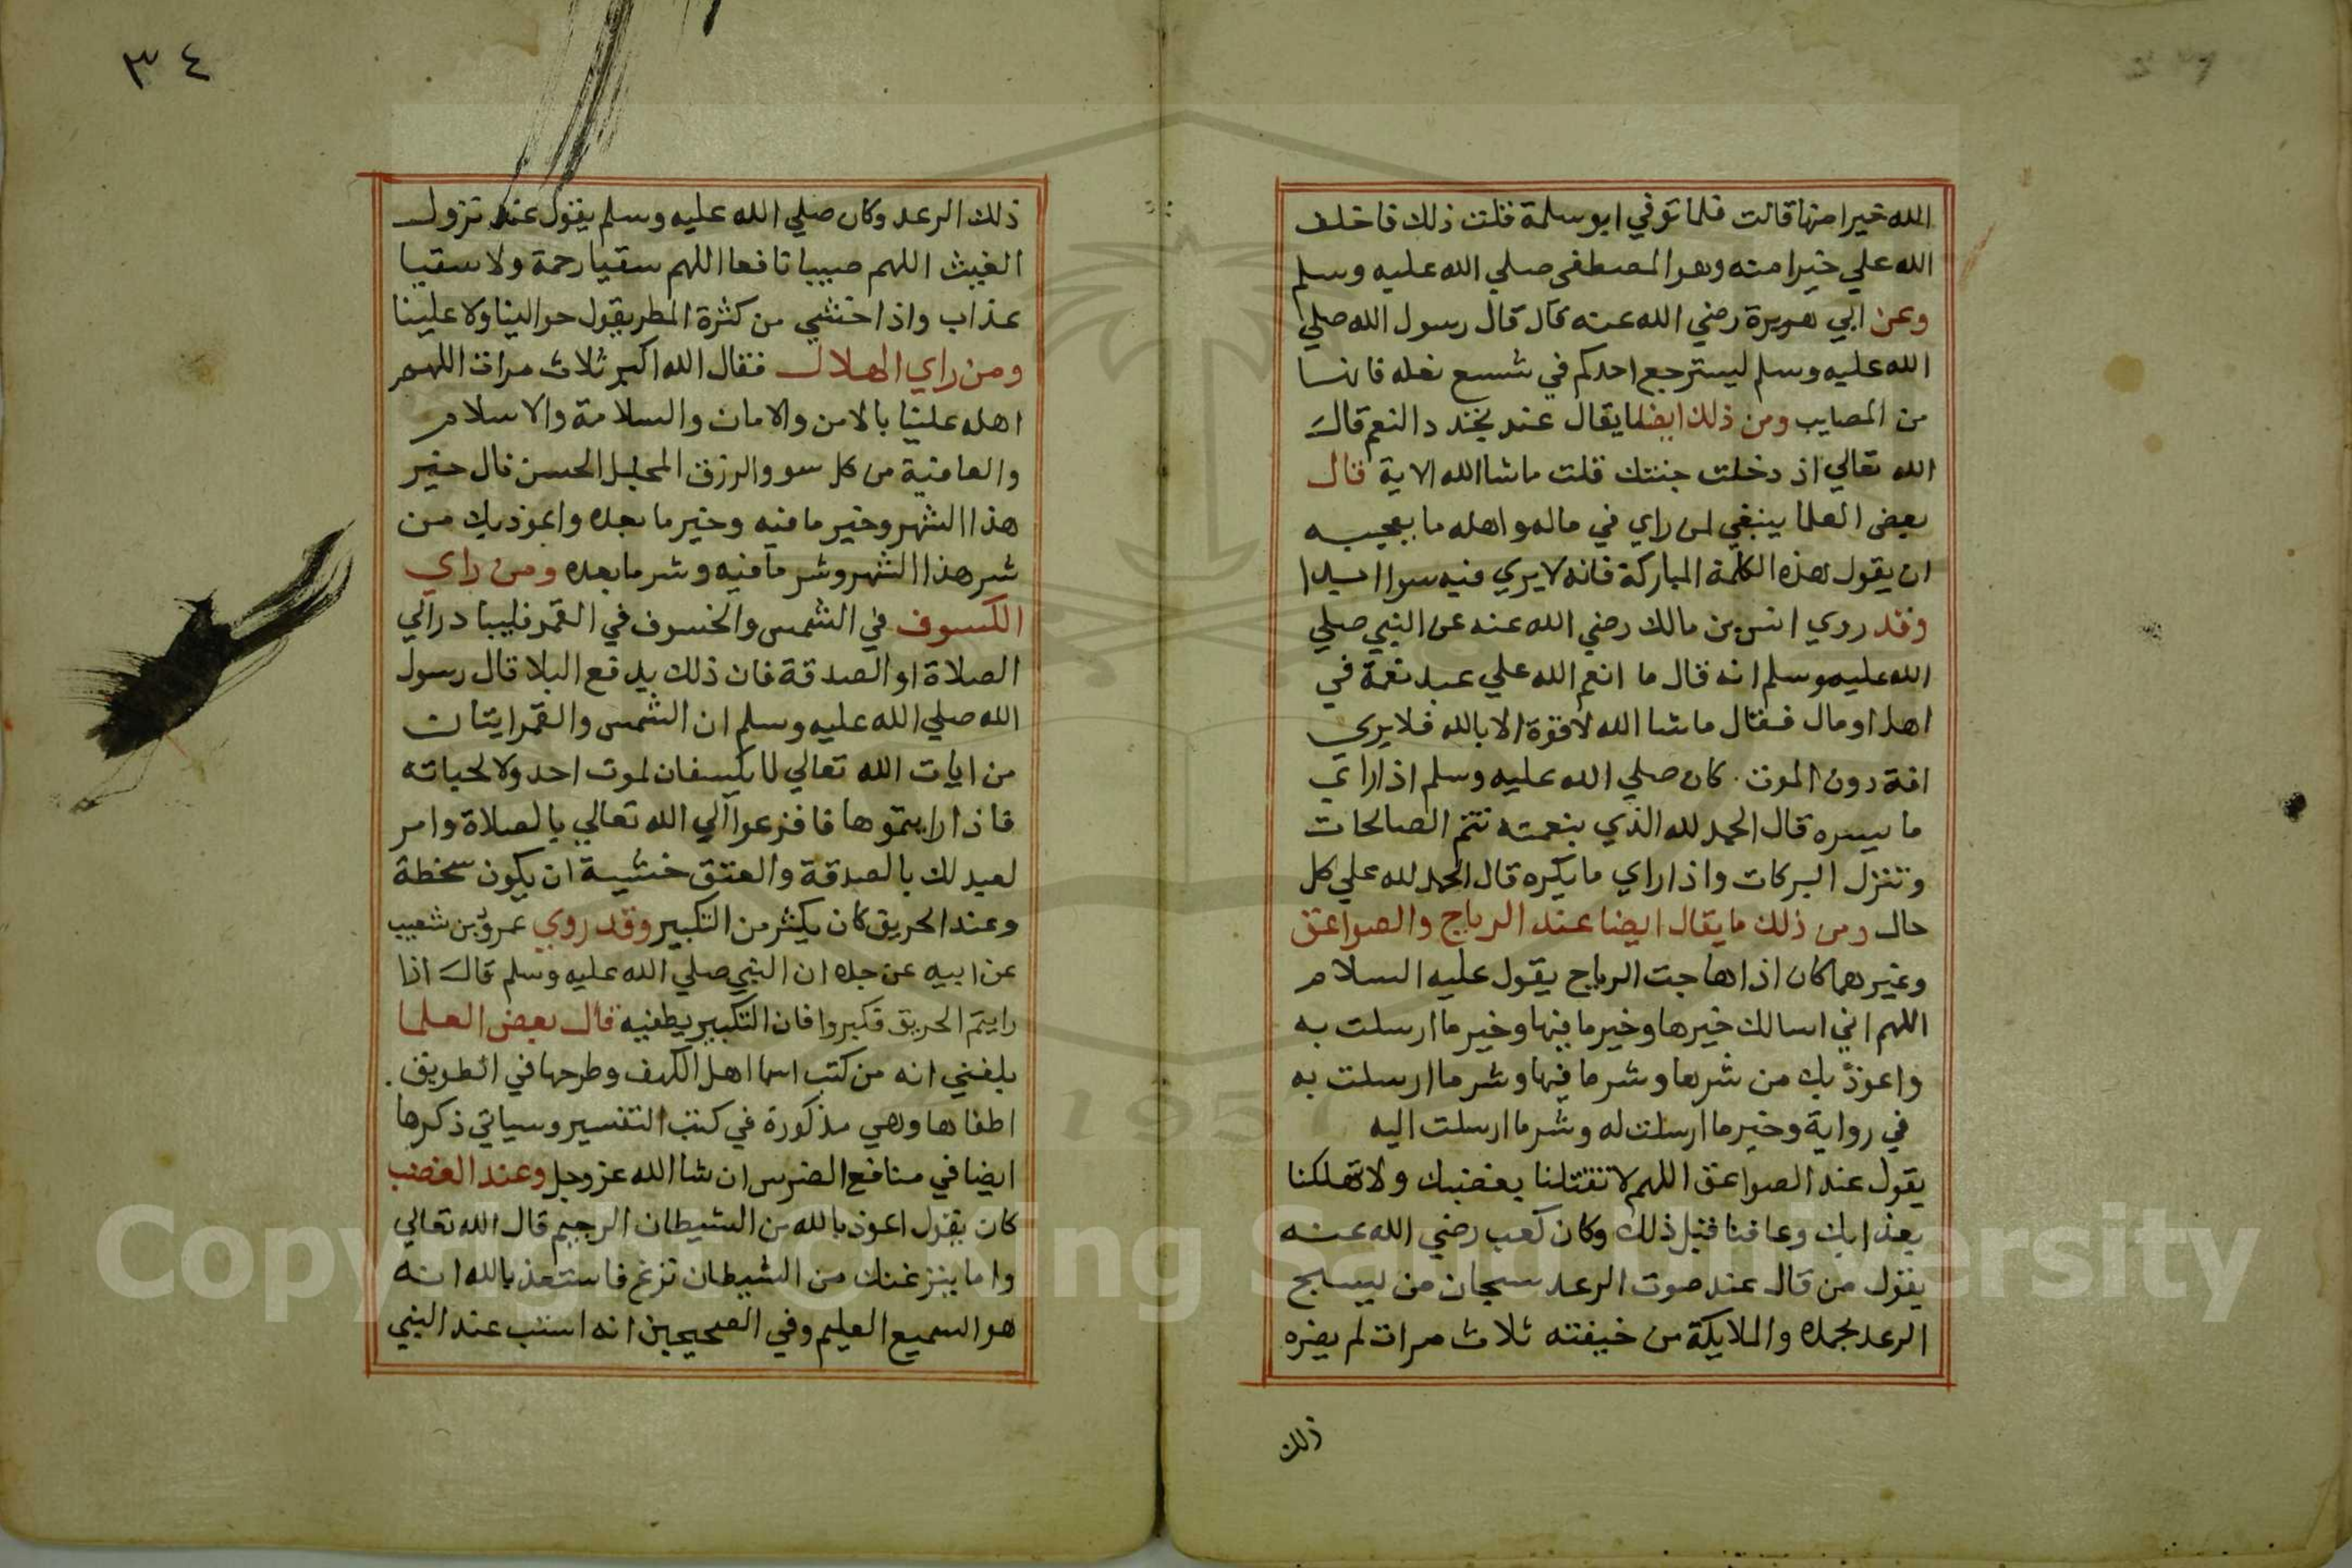 الله خيرا منها قالت فلما توفي ابو سلمة قلت ذلك فاخلف
الله علي خيرا منه وهو المصطفى صلي الله عليه وسلم
وعن ابي هريرة رضي الله عنه قال قال رسول الله صلي
الله عليه وسلم ليسترجع احدكم في شسع نعله فانها
من المصايب ومن ذلك ايضا ما يقال عند تجدد النعم قال
الله تعالي اذ دخلت جنتك قلت ماشا الله الاية قال
بعض العلما ينبغي لمن راي في ماله واهله ما يعجبه
ان يقول هذه الكلمة المباركة فانه لا يري فيه سوا ابدا
وقد روي انس بن مالك رضي الله عنه عن النبي صلي
الله عليه وسلم انه قال ما انعم الله علي عبد نعمة في
اهل او مال فقال ماشا الله لا قوة الا بالله فلا يري
افة دون الموت كان صلي الله عليه وسلم اذا راي
ما يسره قال الحمد لله الذي بنعمته تتم الصالحات
وتنزل البركات واذا راي ما يكره قال الحمد لله علي كل
حال ومن ذلك ما يقال ايضا عند الرياح والصواعق
وغيرهما كان اذا هاجت الرياح يقول عليه السلام
اللهم اني اسالك خيرها وخير ما فيها وخير ما ارسلت به
واعوذ بك من شرها وشر ما فيها وشر ما ارسلت به
في رواية وخير ما ارسلت له وشر ما ارسلت اليه
يقول عند الصواعق اللهم لا تقتلنا بغضبك ولا تهلكنا
بعذابك وعافنا قبل ذلك وكان كعب رضي الله عنه
يقول من قال عند صوت الرعد سبحان من يسبح
الرعد بحمده والملايكة من خيفته ثلاث مرات لم يضره
ذلك
٣٤
ذلك الرعد وكان صلي الله عليه وسلم يقول عند نزول
الغيث اللهم صيبا نافعا اللهم سقيا رحمة ولا سقيا
عذاب واذا خشي من كثرة المطر يقول حوالينا ولا علينا
ومن راي الهلال فقال الله اكبر ثلاث مرات اللهم
اهله علينا بالامن والامان والسلامة والاسلام
والعافية من كل سو والرزق الحسن قال خير
هذا الشهر وخير ما فيه وخير ما بعده واعوذ بك من
شر هذا الشهر وشر ما فيه وشر ما بعده ومن راي
الكسوف في الشمس والخسوف في القمر فليبادر الي
الصلاة او الصدقة فان ذلك يدفع البلا قال رسول
الله صلي الله عليه وسلم ان الشمس والقمر ايتان
من ايات الله تعالي لا يكسفان لموت احد ولا لحياته
فاذا رايتموها فافزعوا الي الله تعالي بالصلاة وامر
لعيد لك بالصدقة والعتق خشية ان يكون سخطة
وعند الحريق كان يكثر من التكبير وقد روي عمرو بن شعيب
عن ابيه عن جده ان النبي صلي الله عليه وسلم قال اذا
رايتم الحريق فكبروا فان التكبير يطفيه قال بعض العلما
بلغني انه من كتب اسما اهل الكهف وطرحها في الطريق
اطفاها وهي مذكورة في كتب التفسير وسياتي ذكرها
ايضا في منافع الضرس ان شا الله عز وجل وعند الغضب
كان يقول اعوذ بالله من الشيطان الرجيم قال الله تعالي
واما ينزغنك من الشيطان نزغ فاستعذ بالله انه
هو السميع العليم وفي الصحيحين انه استب عند النبي
Copyright © King Saud University
1957